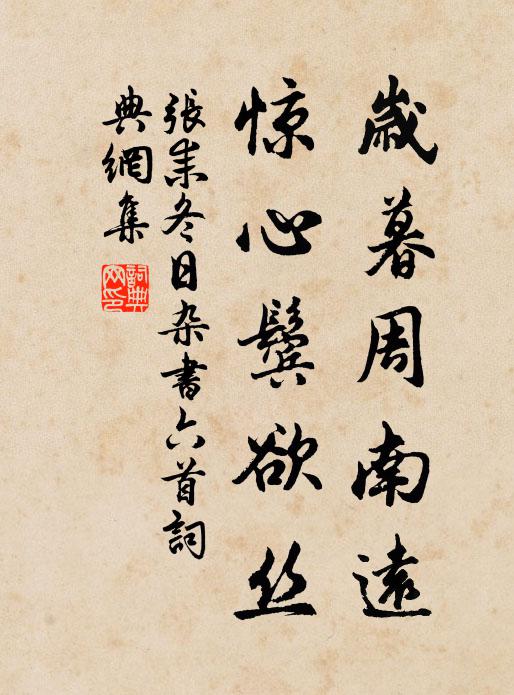 歲暮周南遠
惊心鬓欲丝
張耒冬日杂書六首詞
典網集
詞典网印